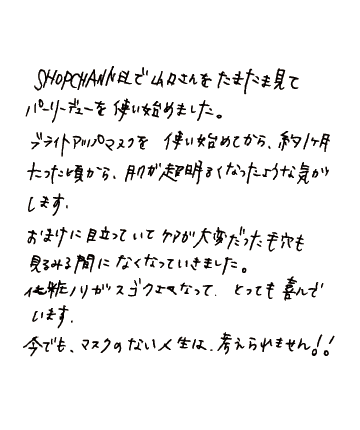 SHOPCHANNELで山口さんをたまたま見て
パーリーデューを使い始めました。
ブライトアップマスクを 使い始めてから、約1ヶ月
たった頃から、肌が超明るくなったような気が
します。
おまけに目立っていてケアが大変だった毛穴も
見るみる間になくなっていきました。
化粧ノリがスゴクよくなって、とっても喜んで
います。
今でも、マスクのない人生は、考えられません!!